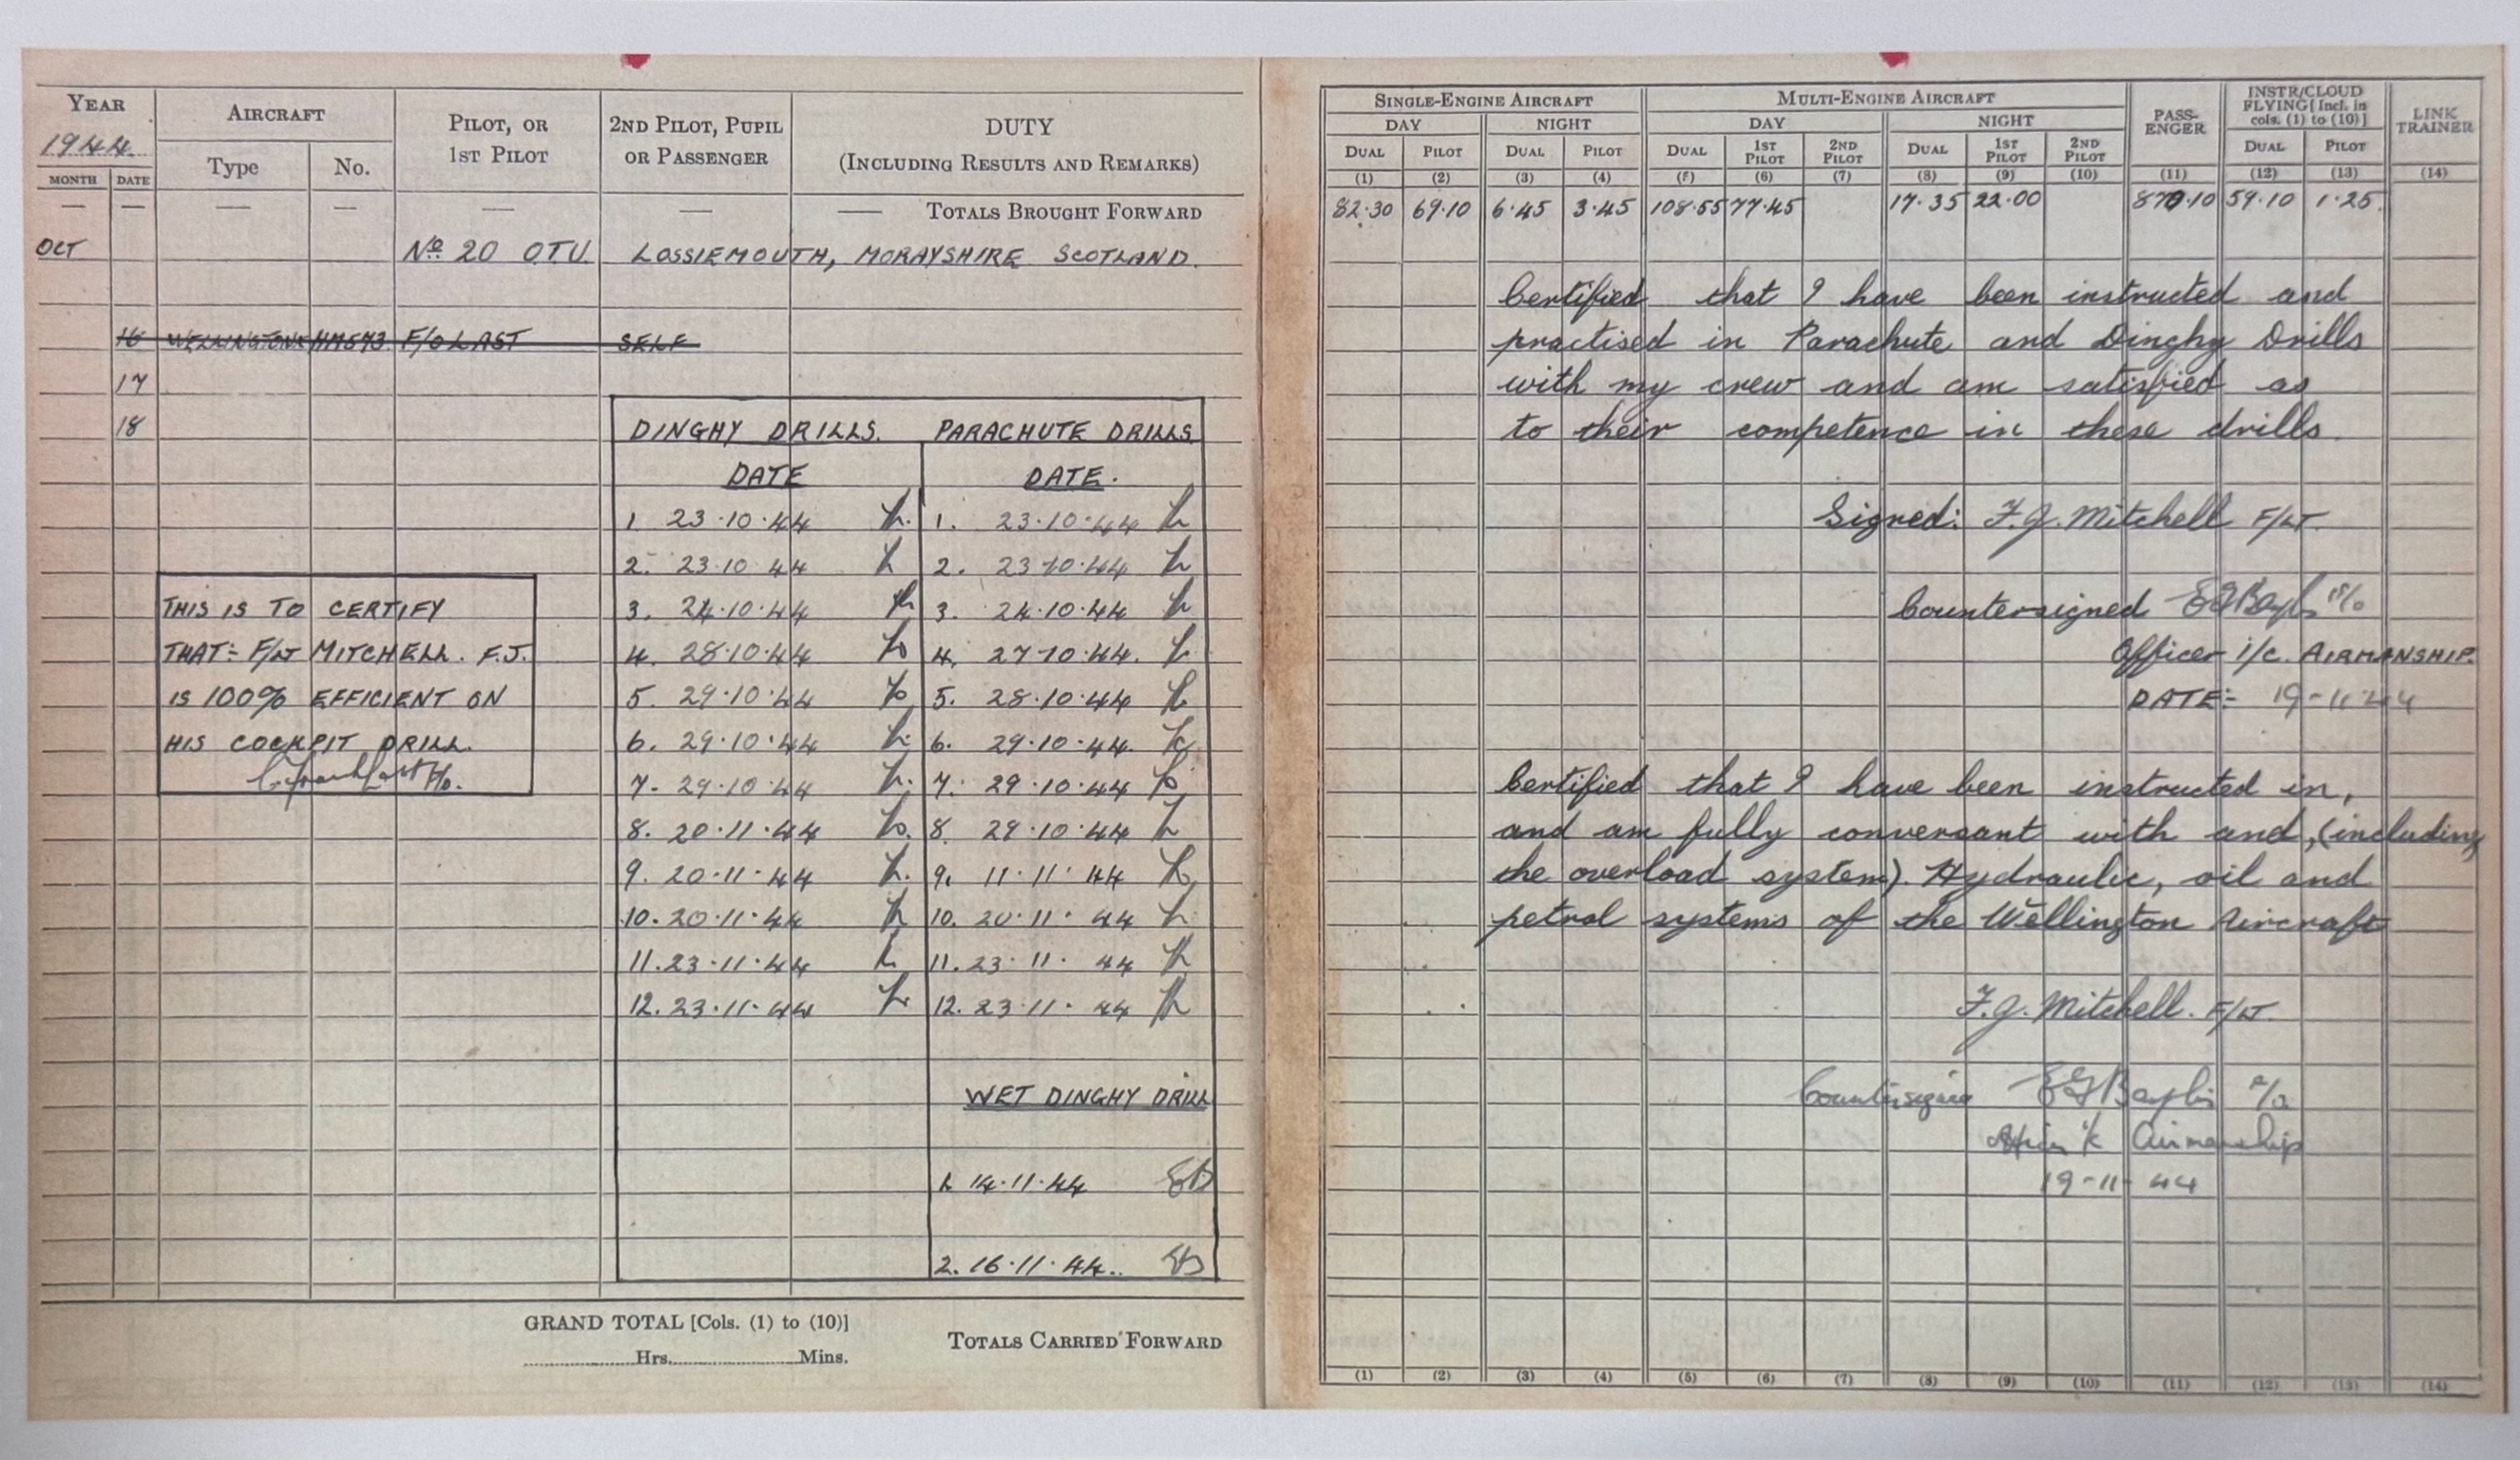 YEAR
1944
AIRCRAFT
PILOT, OR
1ST PILOT
2ND PILOT, PUPIL
OR PASSENGER
DUTY
(INCLUDING RESULTS AND REMARKS)
MONTH DATE Type No.
— — — — — — — TOTALS BROUGHT FORWARD
OCT No 20 OTU. LOSSIEMOUTH, MORAYSHIRE SCOTLAND.
16 F/O LAST SELF
17
18
THIS IS TO CERTIFY
THAT:- F/LT MITCHELL. F.J.
IS 100% EFFICIENT ON
HIS COCKPIT DRILL.
F/O.
DINGHY DRILLS. PARACHUTE DRILLS
DATE DATE.
1 23·10·44 1. 23·10·44
2. 23·10 44 2. 23·10·44
3. 24·10·44 3. 24·10·44
4. 28·10·44 4. 27·10·44.
5. 29·10·44 5. 28·10·44
6. 29·10·44 6. 29·10·44.
7. 29·10·44 7. 29·10·44
8. 20·11·44 8. 29·10·44
9. 20·11·44 9. 11·11·44
10. 20·11·44 10. 20·11·44
11. 23·11·44 11. 23·11·44
12. 23·11·44 12. 23·11·44
WET DINGHY DRILL
1. 14·11·44 EB
2. 16·11·44.. EB
GRAND TOTAL [Cols. (1) to (10)]
Hrs. Mins.
TOTALS CARRIED FORWARD
SINGLE-ENGINE AIRCRAFT MULTI-ENGINE AIRCRAFT PASS-ENGER INSTR/CLOUD FLYING [Incl. in cols. (1) to (10)] LINK TRAINER
DAY NIGHT DAY NIGHT
DUAL PILOT DUAL PILOT DUAL 1ST PILOT 2ND PILOT DUAL 1ST PILOT 2ND PILOT DUAL PILOT
(1) (2) (3) (4) (5) (6) (7) (8) (9) (10) (11) (12) (13) (14)
82·30 69·10 6·45 3·45 108·55 77·45 17·35 22·00 59·10 1·25
Certified that I have been instructed and
practised in Parachute and Dinghy Drills
with my crew and am satisfied as
to their competence in these drills.
Signed: F.J. Mitchell F/LT.
Countersigned
Officer i/c. AIRMANSHIP.
DATE:- 19-11-44
Certified that I have been instructed in,
and am fully conversant with and, (including
the overload system). Hydraulic, oil and
petrol systems of the Wellington Aircraft
F.J. Mitchell. F/LT.
Countersigned
Officer i/c Airmanship
19-11-44
(1) (2) (3) (4) (5) (6) (7) (8) (9) (10) (11) (12) (13) (14)